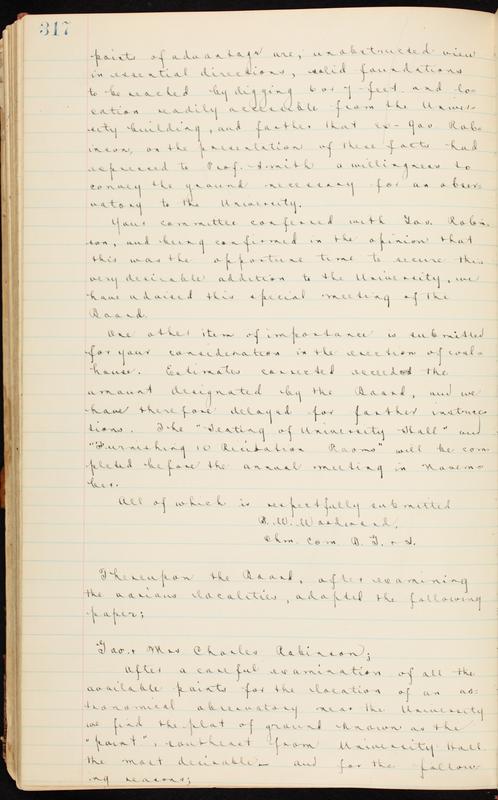 317
points of advantage are, unobstructed view
in essential directions, solid foundations
to be reached by digging 6 or 7 feet and lo-
cation readily accessible from the Univer-
sity building, and further that ex-Gov Rob-
inson, on the presentation of these facts had
expressed to Prof. Smith a willingness to
convey the ground necessary for an obser-
vatory to the University.
Your committee conferred with Gov. Robin-
son, and being confirmed in the opinion that
this was the opportune time to secure this
very desirable addition to the University, we
have advised this special meeting of the
Board.
One other item of importance is submitted
for your consideration in the erection of coal
house. Estimates corrected exceeded the
amount designated by the Board, and we
have therefore delayed for further instruc-
tions. The "Seating of University Hall" and
"Furnishing 10 Recitation Rooms" will be com-
pleted before the annual meeting in Novem-
ber.
All of which is respectfully submitted
B. W. Woodward.
Chm. Com. B. G. & I.
Thereupon the Board, after examining
the various localities, adopted the following
paper;
Gov. & Mrs Charles Robinson;
After a careful examination of all the
available points for the location of an as-
tronomical observatory near the University
we find the plat of ground known as the
"point", southeast from University Hall
the most desirable— and for the follow-
ing reasons;